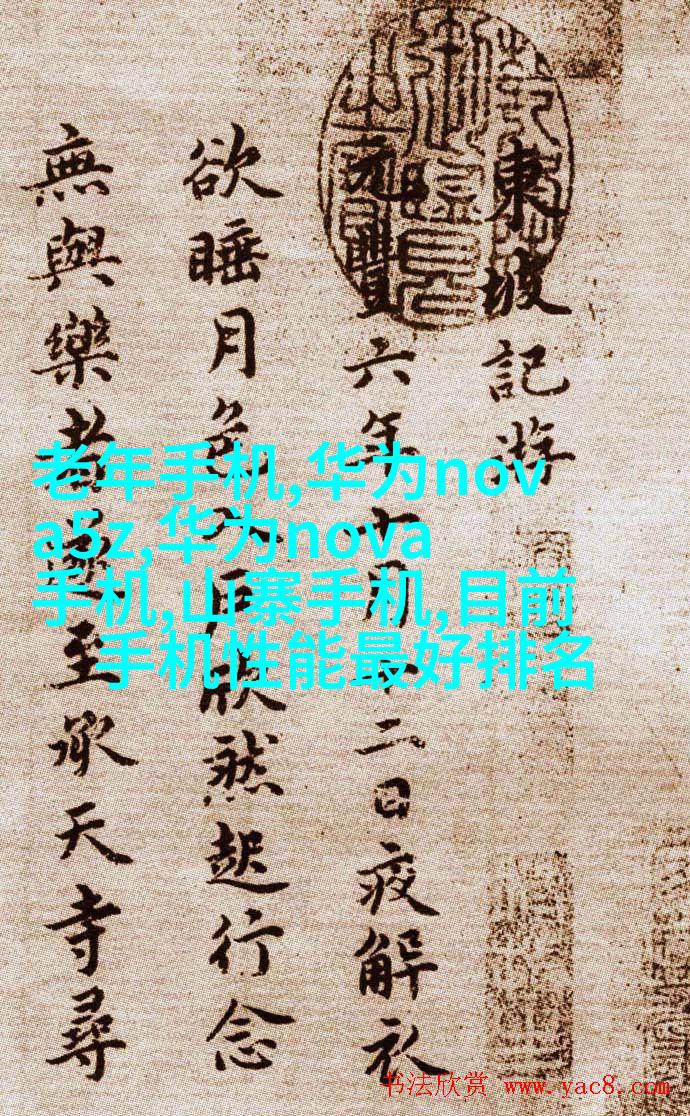 東坡記游
元豐六年十月十二日夜解衣
欲睡月色入戶欣然起行念
無與樂者遂至承天寺尋
老年手机,华为nov
a5z,华为nova
手机,山寨手机,目前
手机性能最好排名
书法欣赏 www.yac8.com